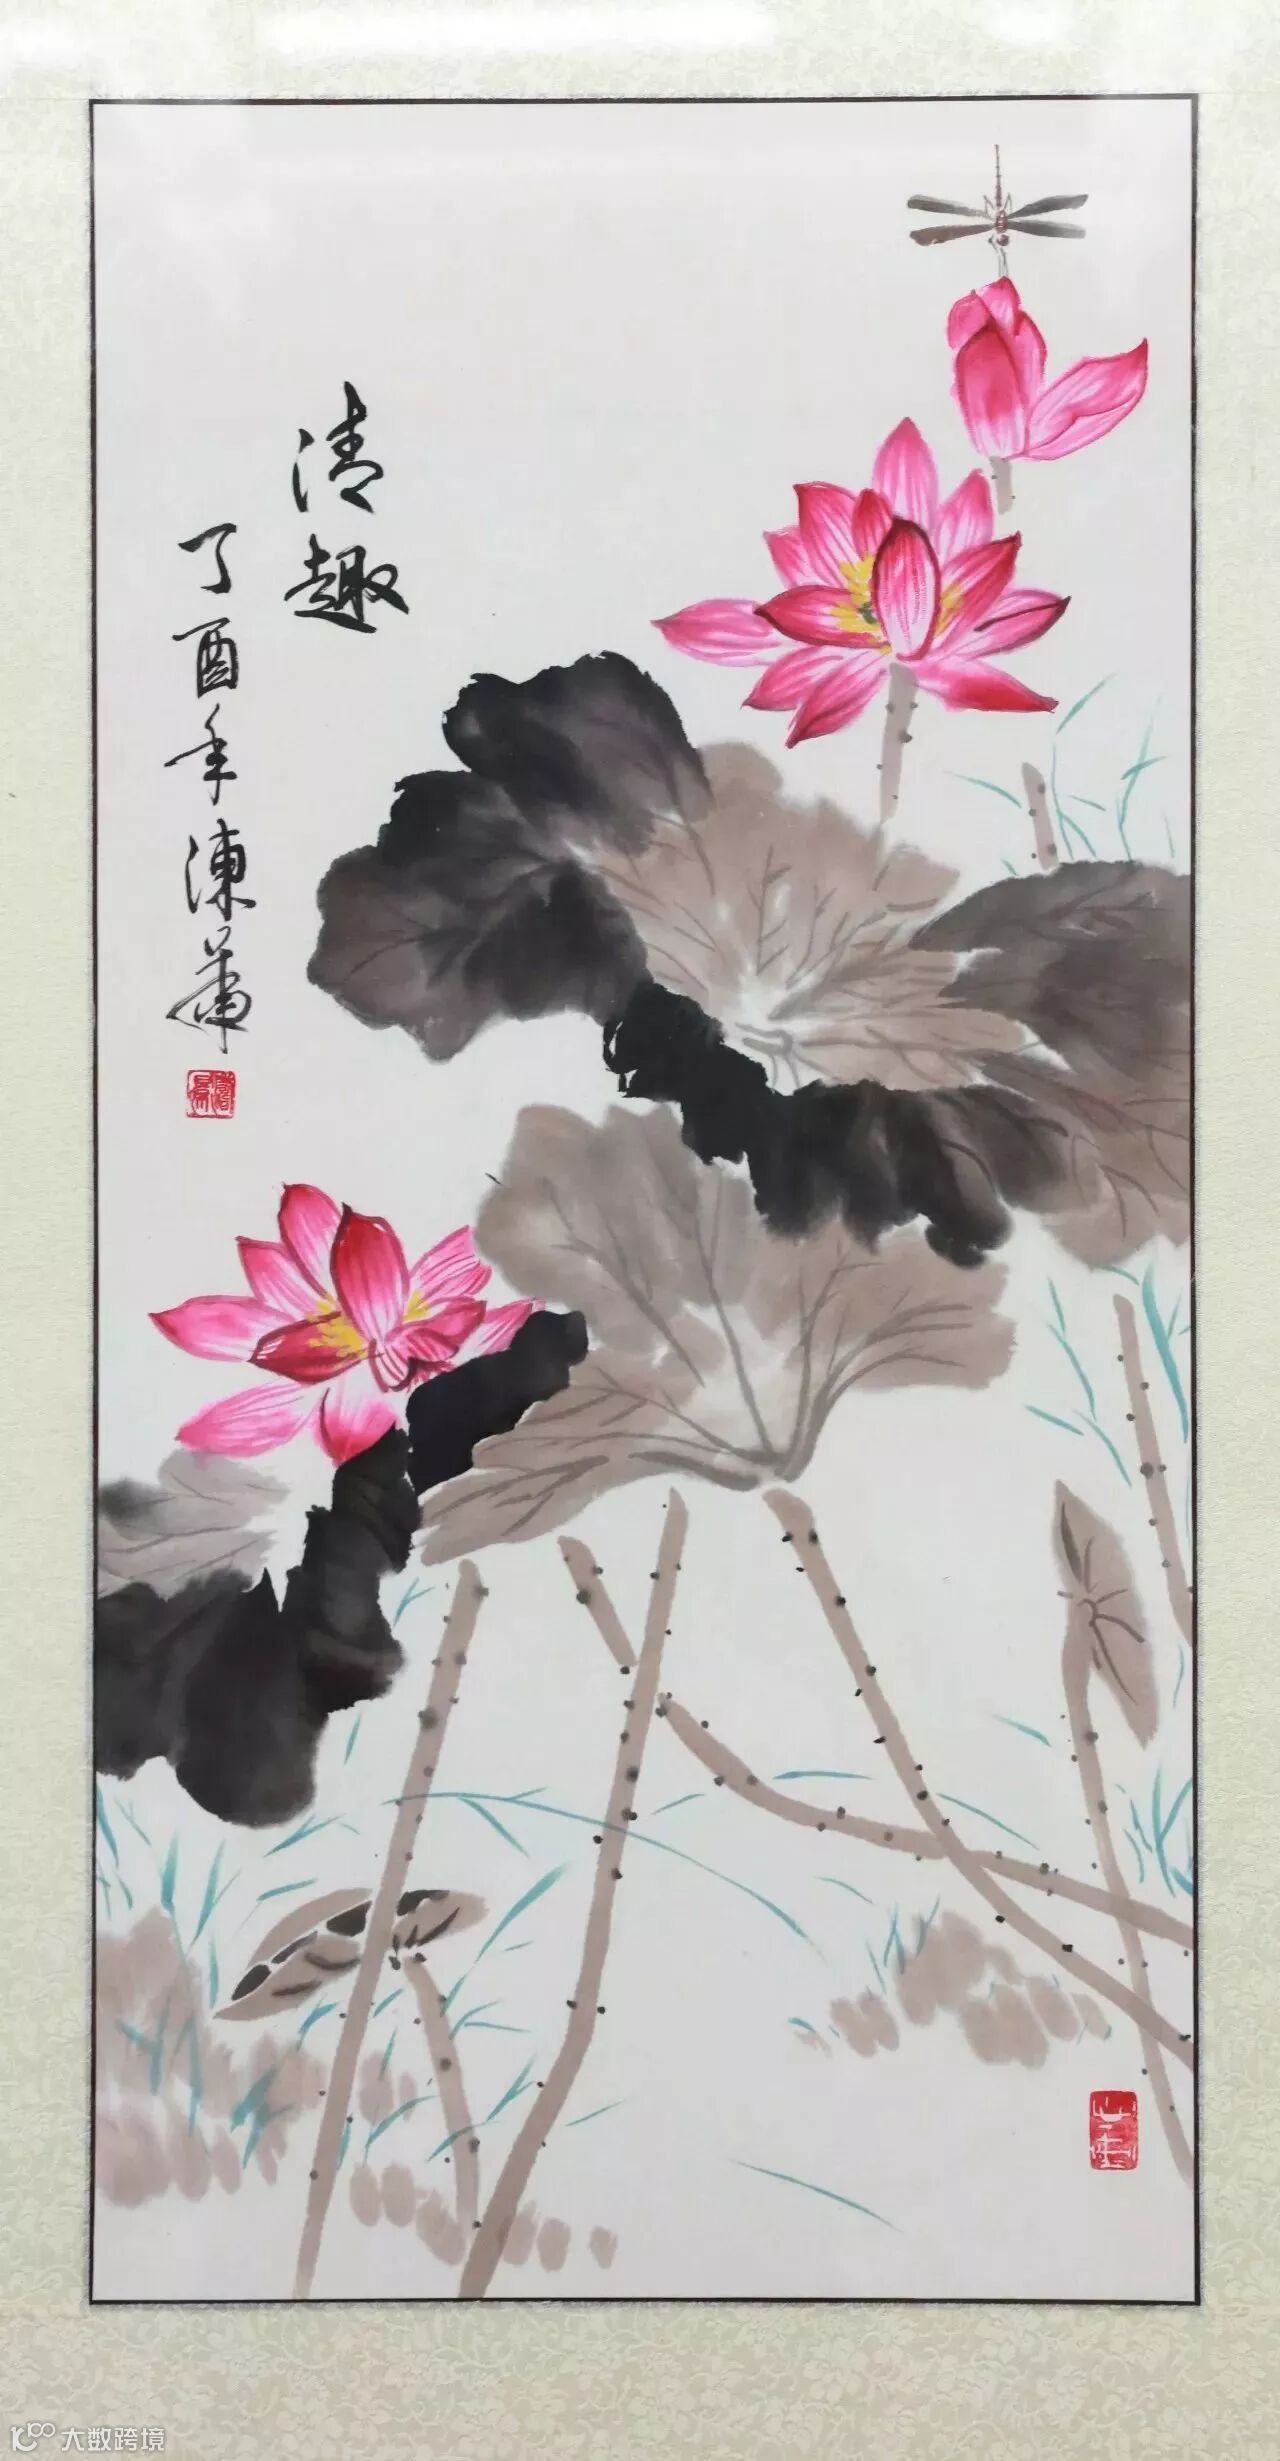 清趣
丁酉年陈萧
大数跨境